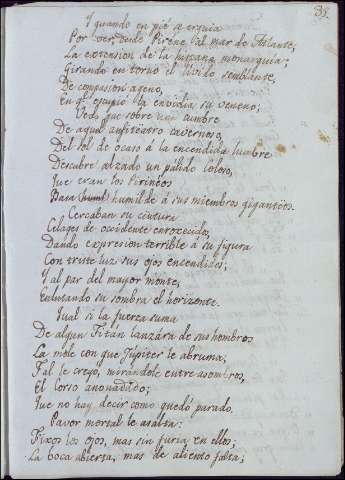 35
Y quando en pié se erguia
Por ver, desde Pirene al mar de Atlante,
La extension de la hispana monarquia;
Jirando en torno el lívido semblante,
De compasion ageno,
En qe escupió la envidia su veneno;
Vedi que sobre una cumbre
De aquel anfiteatro cavernoso,
Del sol de ocaso á la encendida lumbre
Descubre alzado un pálido Coloso,
Que eran los Pirineos
Basa humil humilde á sus miembros giganteos.
Cercaban su cintura
Celages de occidente enrogecidos,
Dando expresion terrible á su figura
Con triste luz sus ojos encendidos;
Y al par del mayor monte,
Enlutando su sombra el horizonte.
Qual si la fuerza suma
De algun Titán lanzára de sus hombros
La mole con que Júpiter le abruma;
Tal le creyo, mirándole entre asombros,
El Corso anonadado;
Que no hay decir como quedó parado.
Pavor mortal le asalta:
Fixos los ojos, mas sin furia en ellos;
La boca abierta, mas de aliento falta;